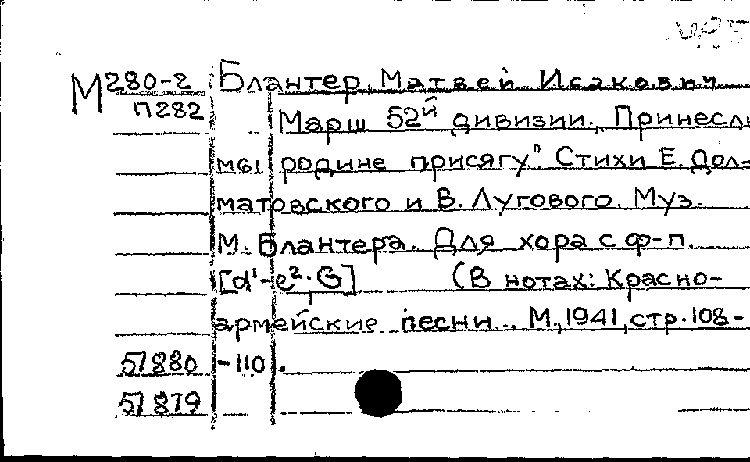 М280-2 Блантер, Матвей Исакович
П282 Марш 52й дивизии. „Принесли
мы родине присягу". Стихи Е. Дол-
матовского и В. Лугового. Муз.
М. Блантера. Для хора с ф-п.
[d¹-e²· G] (В нотах: Красно-
армейские песни.. М, 1941, стр. 108-
51880 -110).
51879